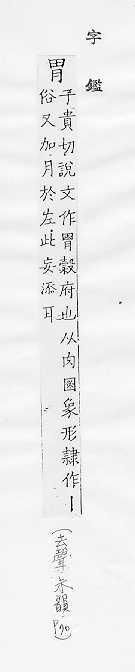 字鑑
胃
于貴切說文作胃穀府也从肉囗象形隸作丨
俗又加月於左此妄添耳
(去聲未韻 P90)